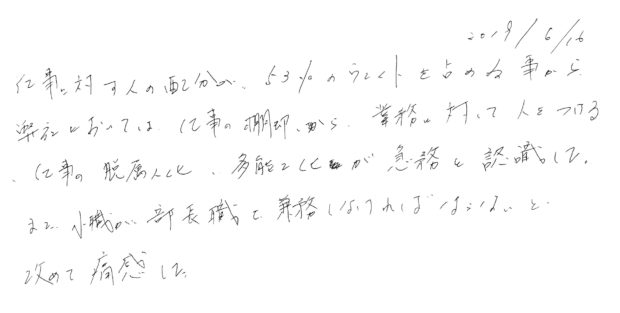 2019/6/16
仕事に対す人の配分が、53%のウエイトを占める事から
弊社においては、仕事の棚卸から、業務に対して人をつける
、仕事の脱属人化、多能工化が急務と認識した。
また、小職が部長職を兼務しなければならないと
改めて痛感した。